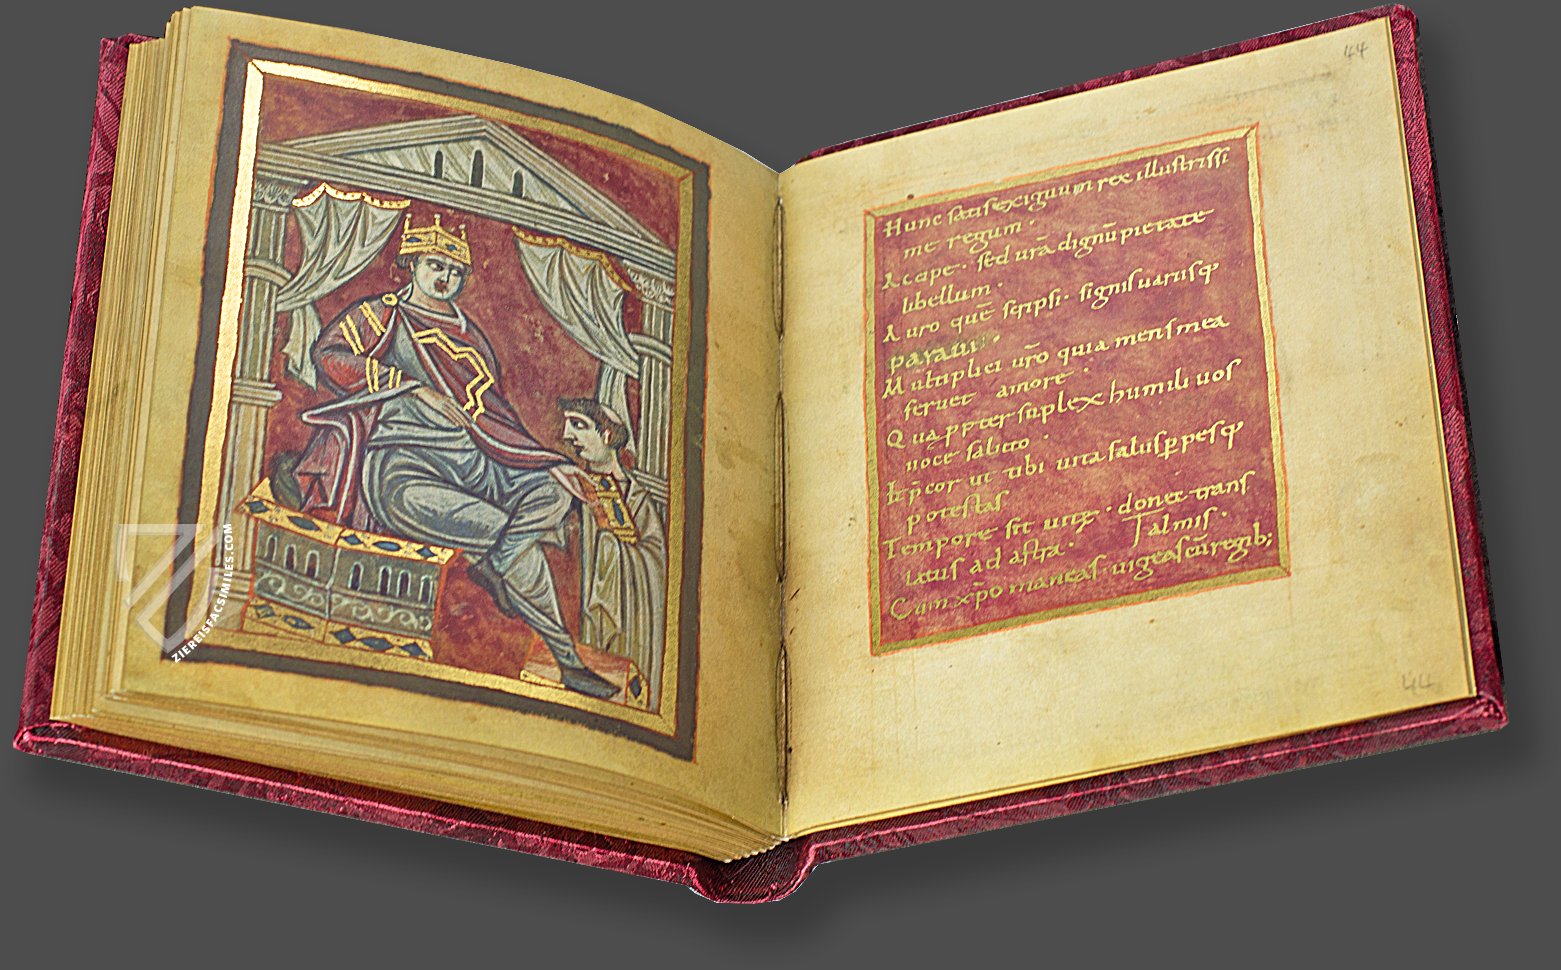 ZIEREISFACSIMILES.COM
44
Hunc satis exiguum rex illustrissi
me regum·
Accipe· sed urā dignū pietate
libellum·
Auro quē scripsi· signis uariisq;
paraui·
Multiplici uro quia mens mea
feruet amore·
Quapppter suplex humili uos
uoce saluto·
Et p̄cor ut tibi uita salus p̄pesq;
potestas
Tempore sit uitę· donec trans
latus ad astra· Talmis·
Cum xp̄o maneas· uigeas cū regib;
44